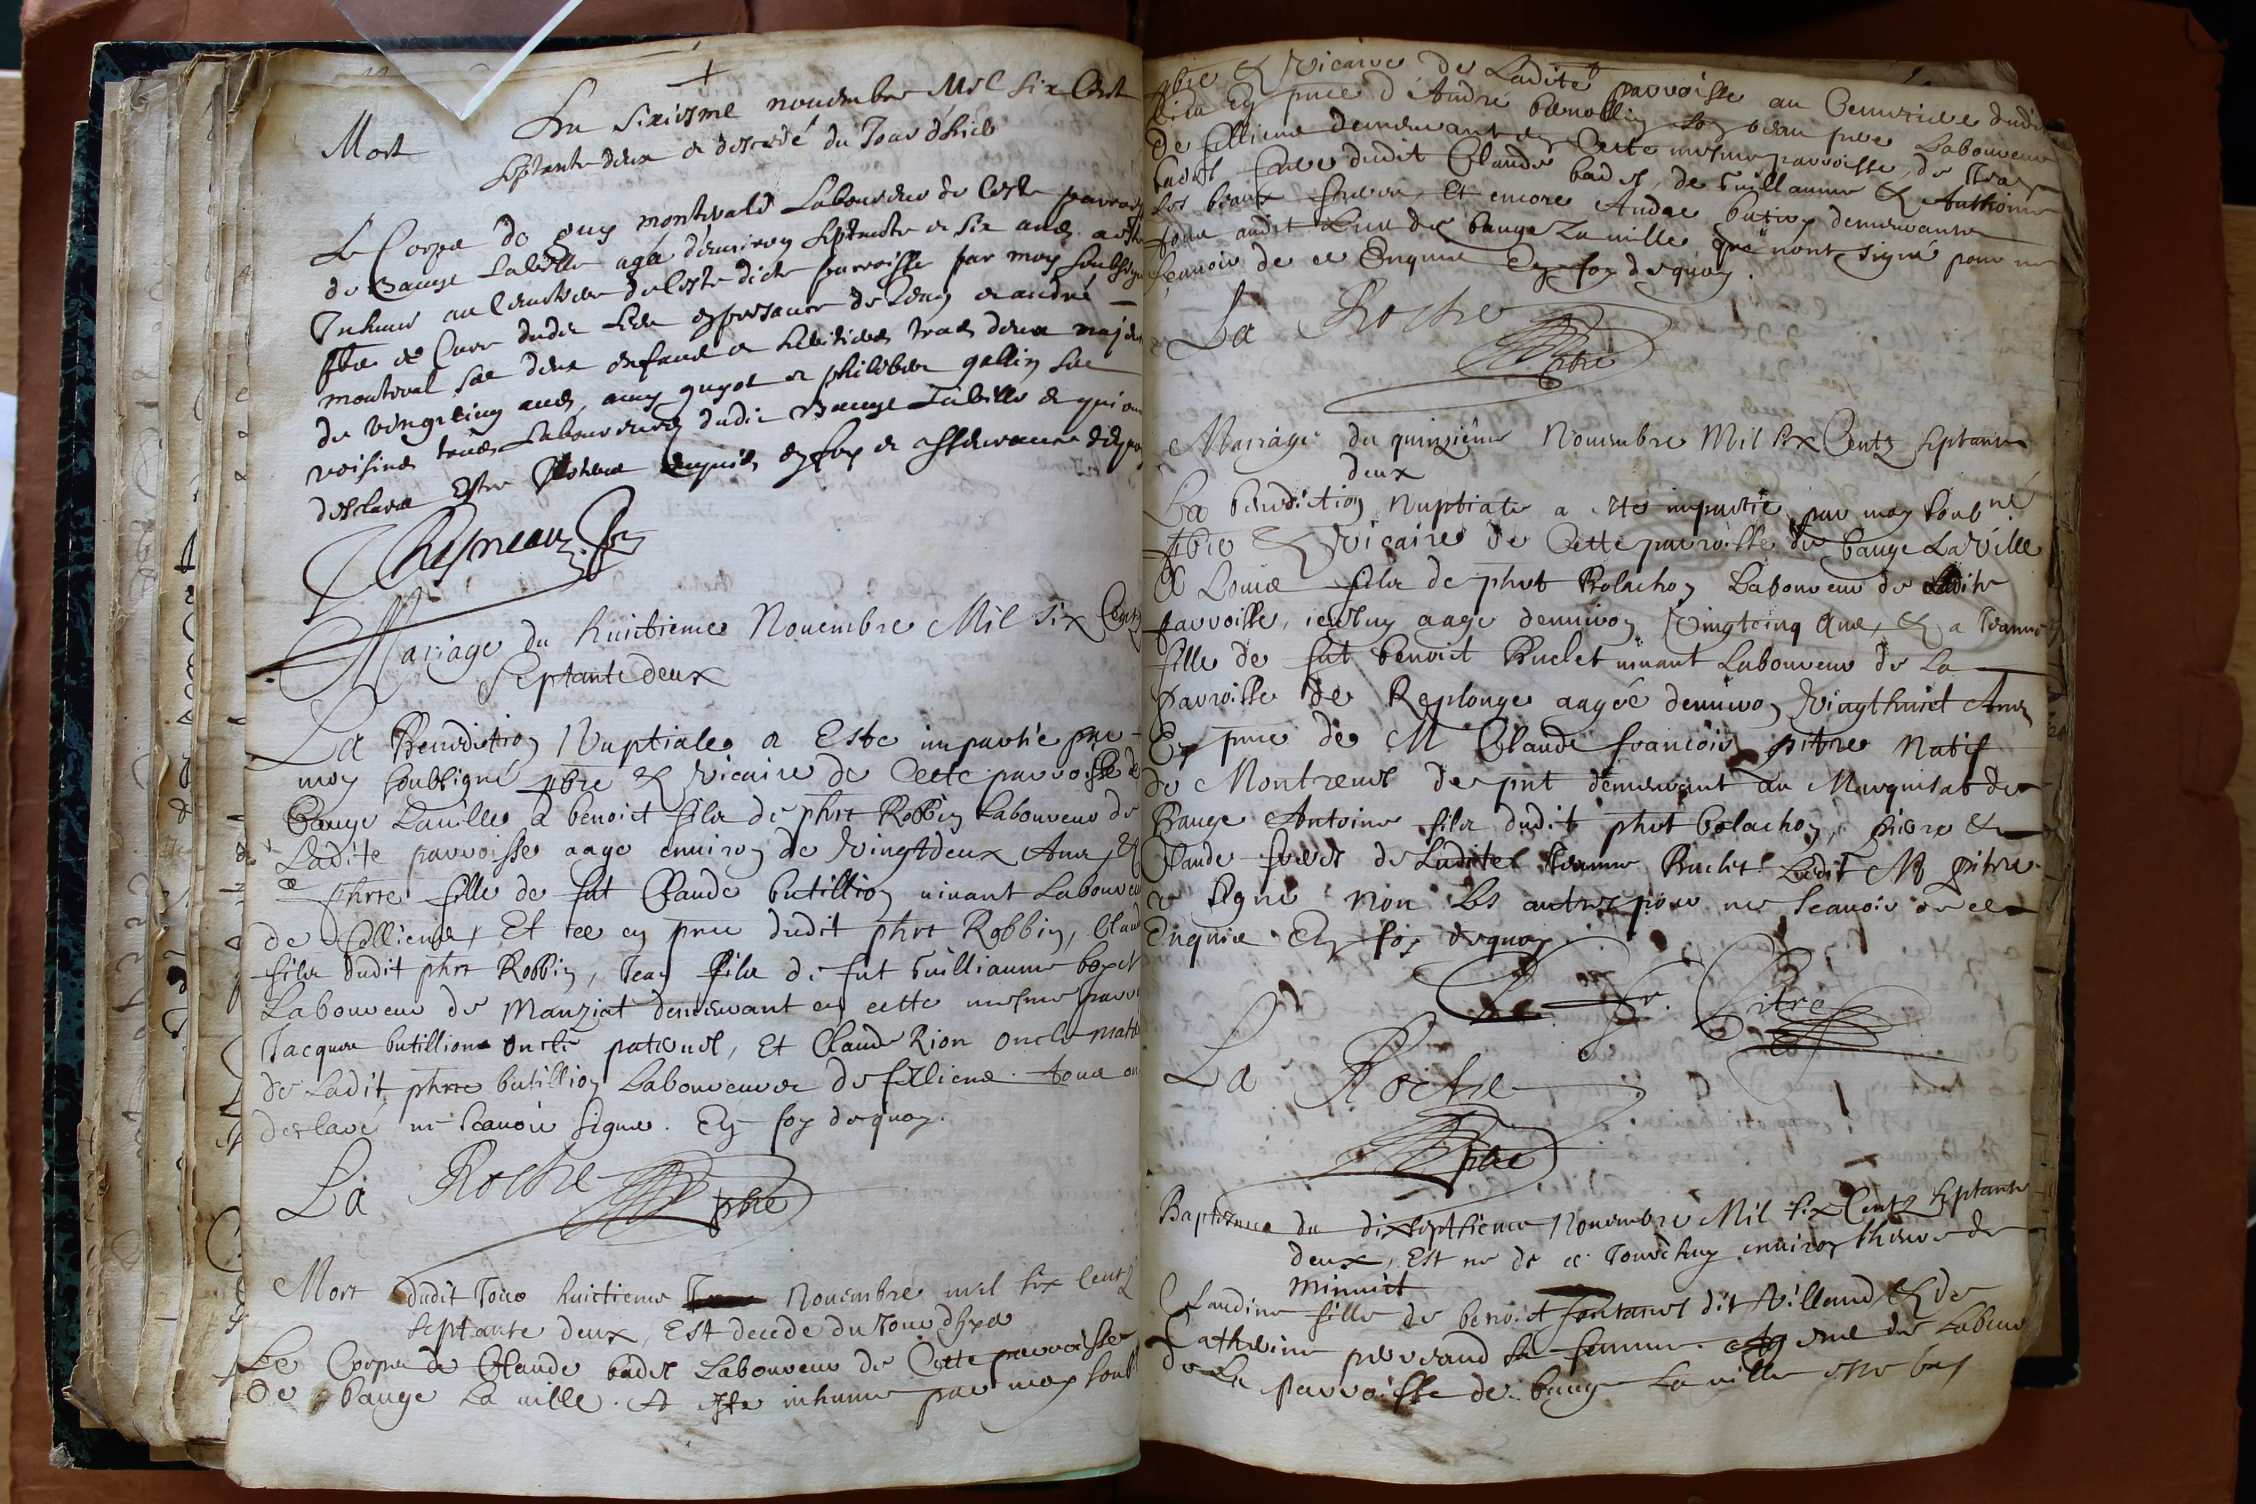 Mort
Du sixiesme novembre Mil six Cent
septante deux et descedé du Jour d'hier
Le Corps de guy montvald Laboureur de Ceste parrois
de Bauge Laville agé d'environ septante et six ans a esté
Inhumé au Cimetiere de Ceste dicte parroisse par moy soubsigné
pbre et Curé dudit Lieu en presance de et andré
montval ses deux enfans et heritiers tous deux majeurs
de vingt cinq ans, guyot et philibert gallin ses
voisins tous Laboureurs dudit Bauge Laville et qui ont
desclaré Enquis en foy et asseurance dequoy
Chesneau
Mariage du huictieme Novembre Mil six Centz
Septante deux
La Benediction Nuptiale a Esté impartie par
moy soubsigné pbre & vicaire de Cette parroisse de
Bauge Laville a benoict fils de phrt Robbin Laboureur de
Ladite parroisse aage environ de Vingtdeux Ans, &
a phrte fille de fut Claude butillion vivant Laboureur
de felliens, Et ce en pnce dudit phrt Robbin, Claude
fils dudit phrt Robbin, Jean fils de fut Guilliaume
Laboureur de Manziat demeurant en cette mesme parroi
Jacques butillion oncle paternel, Et Claude Rion oncle mater
de Ladit phrte butillion Laboureurs de felliens. tous ont
desclaré ne scavoir signer. En foy dequoy.
La Roche pbre
Mort dudit Jour huictieme Novembre mil six Centz
septante deux, Est decede du Jour d'hyer
Le Corps de Claude badel Laboureur de Cette parroisse
de bauge La ville. A esté inhumé par moy soubs
pbre & Vicaire de Ladite parroisse au Cemetiere dudit
lieu En pnce d'André son beau pere Laboureur
de felliens demeurant en Cette mesme parroisse, de
badel frere dudit Claude badel, de Guillaume & Anthoine
ses beaux freres, Et encore Andre demeurants
tous audit Lieu de bauge La ville que n'ont signé pour ne
scavoir de ce Enquis En foy dequoy.
La Roche pbre
Mariage du quinzieme Novembre Mil six Centz septante
deux
La benediction Nuptiale a esté impartie par moy soubné
pbre & Vicaire de Cette parroisse de bauge La Ville
A Louis fils de phrt Bolachon Laboureur de Ladite
parroisse, iceluy aage d'environ Vingtcinq Ans, & a Jeanne
fille de fut benoict Buchet vivant Laboureur de La
parroisse de Replonge aagée denviron Vingthuict Ans
En pnce de M Claude francois pitre Natif
de Montreuel de pnt demeurant au Marquisat de
Bauge Antoine fils dudit phrt bolachon, pierre &
Claude freres de Ladite Jeanne Buchet. Ledit M pitre
a signe Non Les autres pour ne scavoir de ce
Enquis En foy dequoy
C. fr. Pitre
La Roche pbre
Baptesme du dixseptieme Novembre Mil six Centz septante
deux, Est ne de ce Jourdhuy environ lheure de
Minuict
Claudine fille de benoist fontanel dit Villand, & de
Catherine perreaud sa femme.
de La parroisse de bauge La ville